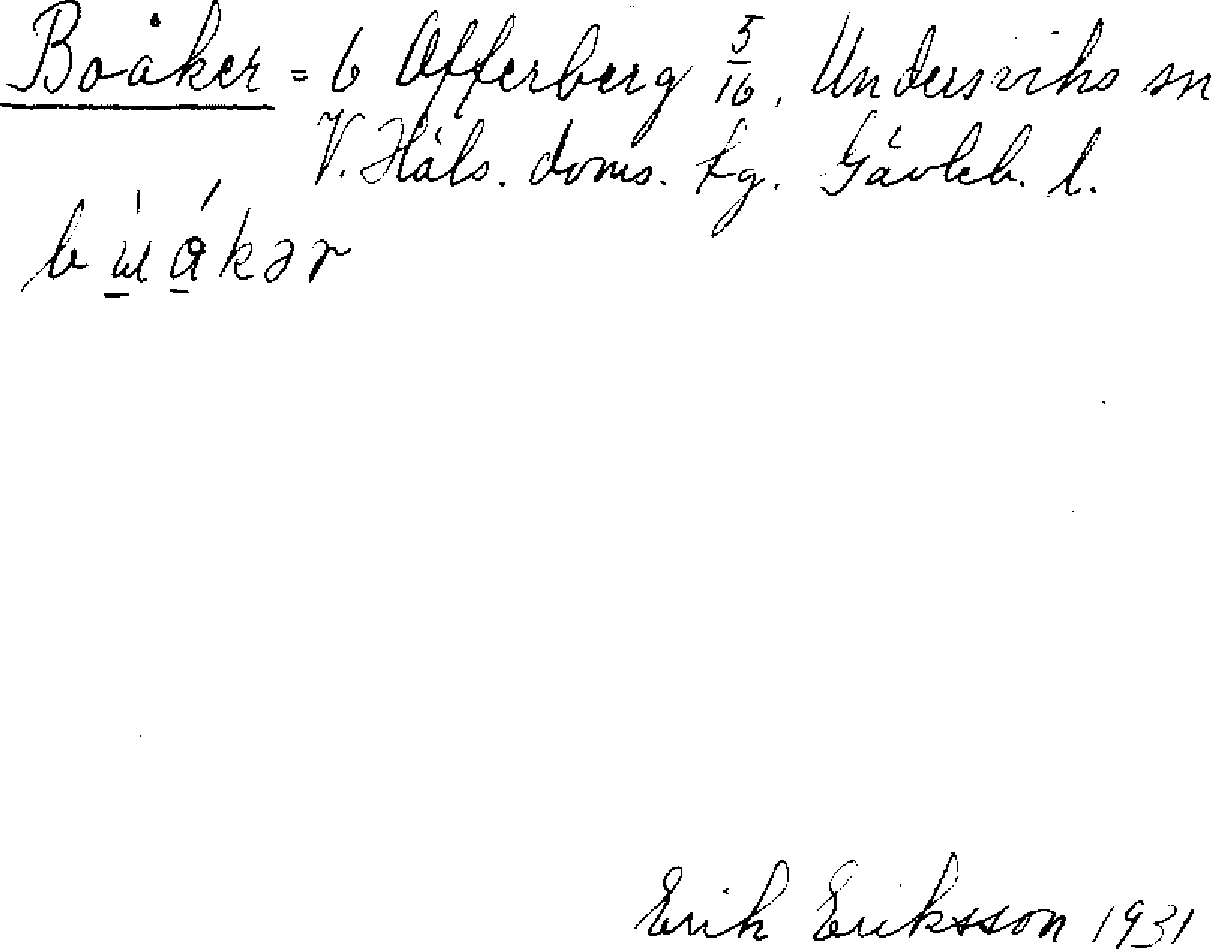 Boåker = 6 Offerberg 5/16, Undersviks sn
V. Häls. doms. tg. Gävleb. l.
bu̱a̱kər
Erik Eriksson 1931